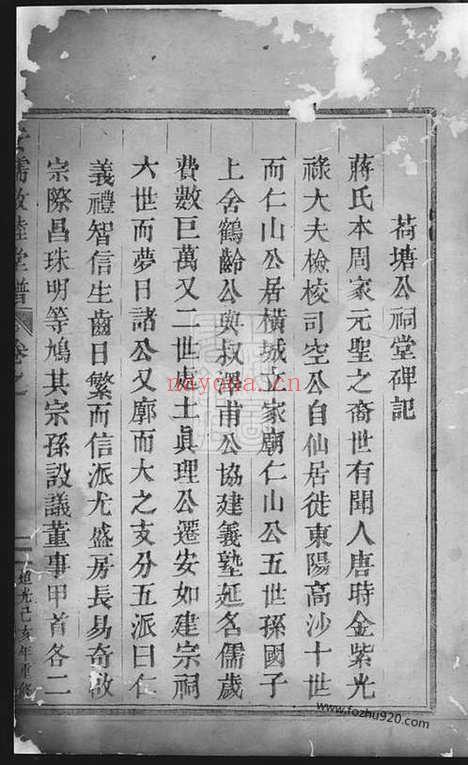 荷塘公祠堂碑記
蔣氏本周家元聖之裔世有聞人唐時金紫光
祿大夫檢校司空公自仙居徙東陽高沙十世
而仁山公居橫城立家廟仁山公五世孫國子
上舍鶴齡公與叔澤甫公協建義塾延名儒歲
費數巨萬又二世處士真理公遷安如建宗祠
六世而夢日諸公又廓而大之支分五派曰仁
義禮智信生齒日繁而信派尤盛房長易奇啟
宗際昌珠明等鳩其宗孫設議董事甲首各二
儒敦睦堂譜 卷之
道光己亥年重修
nayona.cn
www.fozhu920.com